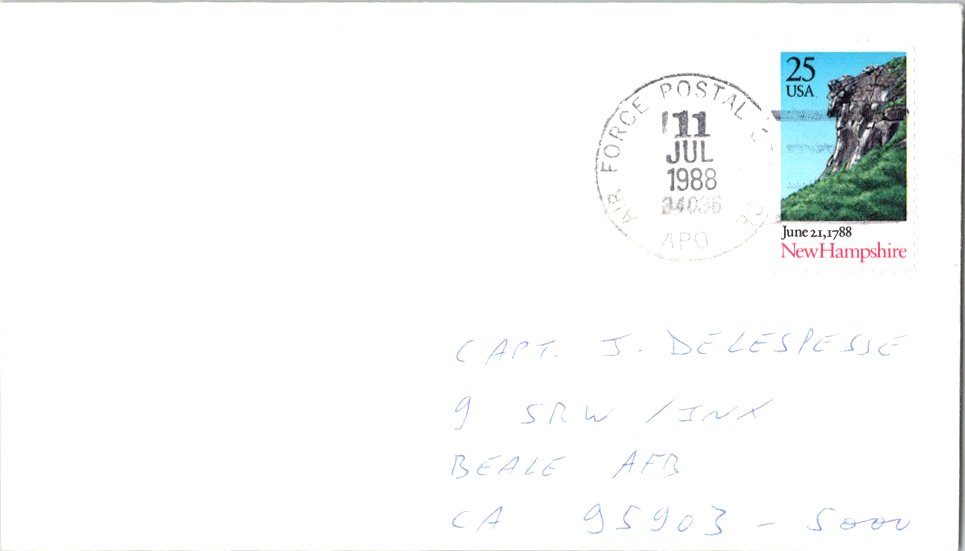 25
USA
AIR FORCE POSTAL
11
JUL
1988
34036
APO
June 21, 1788
New Hampshire
CAPT. J. DELESPESSE
9 SRW / INX
BEALE AFB
CA 95903-5000